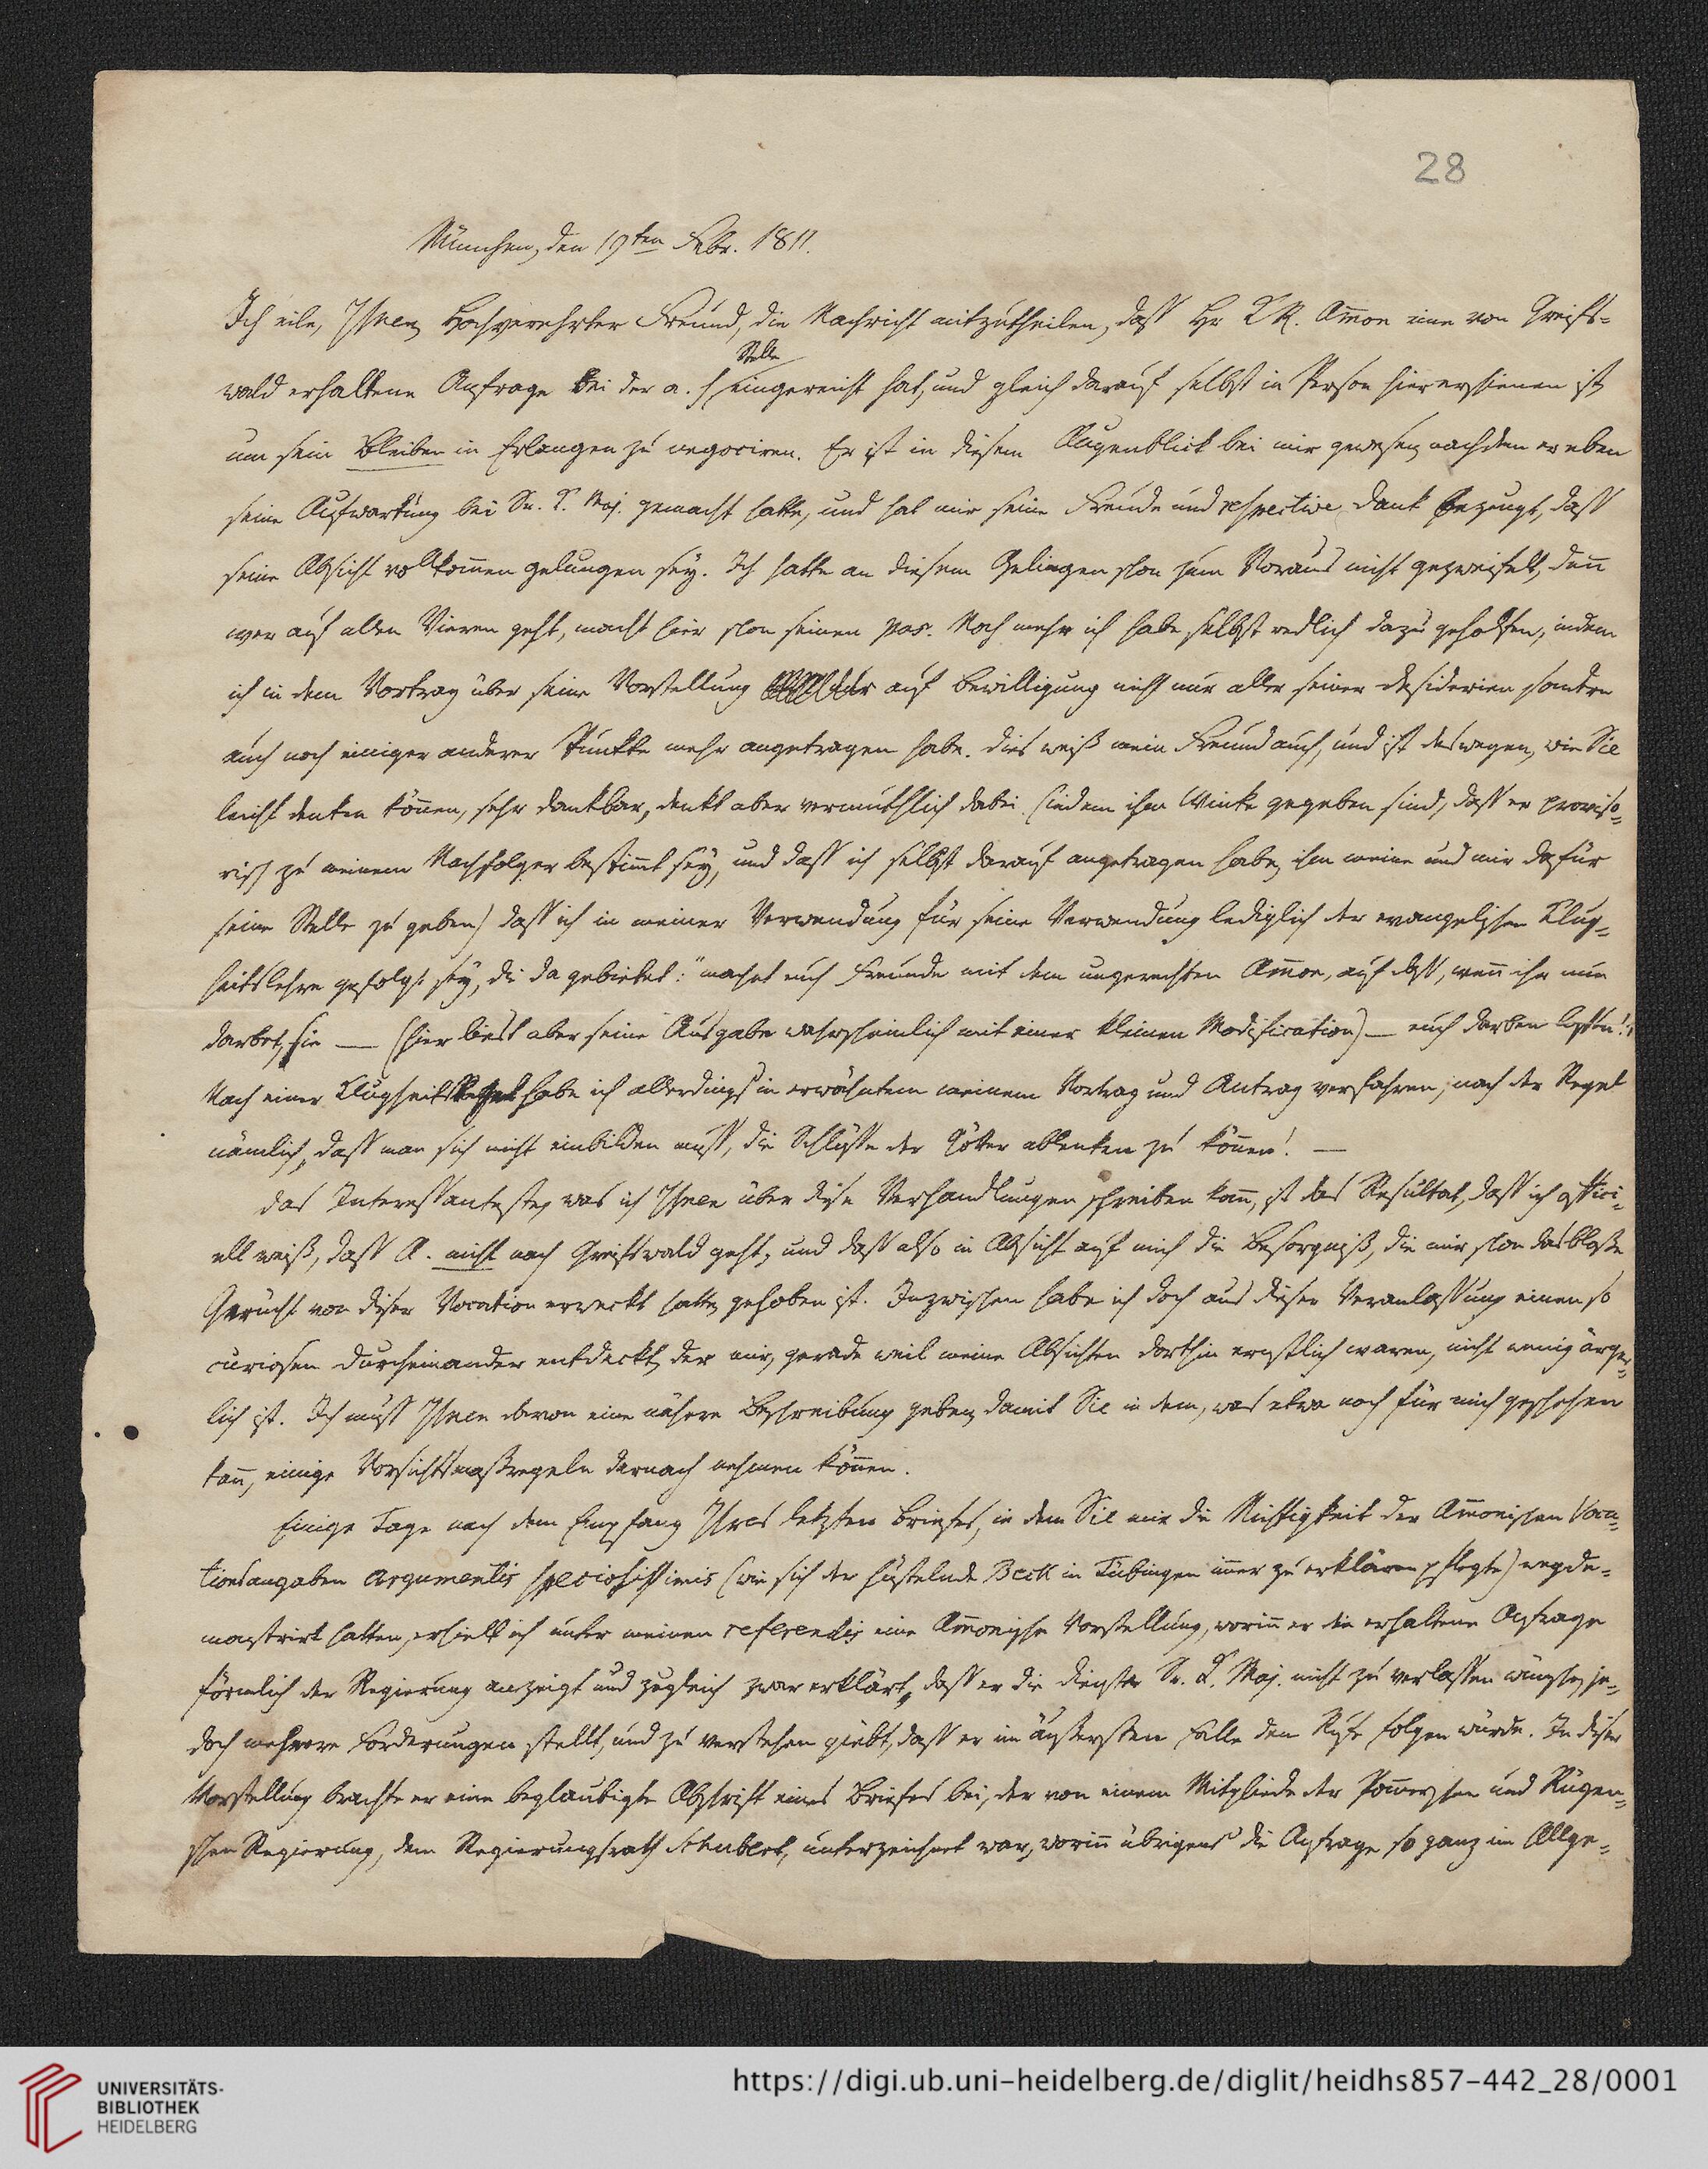 28
München, den 19ten Febr. 1811.
Ich eile, Ihnen, Hochverehrter Freund, die Nachricht mitzutheilen, dass Hr KR. Am̄on eine von Greifs-
Stelle
wald erhaltene Anfrage bei der a. h. eingereicht hat, und gleich darauf selbst in Person hier erschienen ist,
um sein Bleiben in Erlangen zu negociren. Er ist in diesem Augenblick bei mir gewesen, nachdem er eben
seine Aufwartung bei Sr. K. Maj. gemacht hatte, und hat mir seine Freude und respective Dank bezeugt, dass
seine Absicht vollkom̄en gelungen sey. Ich hatte an diesem Gelingen schon zum Voraus nicht gezweifelt, den̄
wer auf allen Vieren geht, macht hier schon seinen pas. Noch mehr ich habe selbst redlich dazu geholfen, indem
ich in dem Vortrag über seine Vorstellung auf Bewilligung nicht nur aller seiner Desiderien sondern
auch noch einiger anderer Punkte mehr angetragen habe. Dies weiß mein Freund auch, und ist deswegen, wie Sie
leicht denken kön̄en, sehr dankbar, denkt aber vermuthlich dabei (indem ihm Winke gegeben sind, dass er proviso-
risch zu meinem Nachfolger bestim̄t sey, und dass ich selbst darauf angetragen habe, ihm meine und mir dafür
seine Stelle zu geben) dass ich in meiner Verwendung für seine Verwendung lediglich der evangelischen Klug-
heitslehre gefolgt sey, die da gebietet: "machet euch Freunde mit dem ungerechten Am̄on, auf dass, wen̄ ihr nun
darbet, sie — (hier liest aber seine Ausgabe wahrscheinlich mit einer kleinen Modification) — euch darben lassen!"
Nach einer Klugheitsregel habe ich allerdings in erwähntem meinem Vortrag und Antrag verfahren, nach der Regel
nämlich, dass man sich nicht einbilden muss, die Schlüsse der Götter ablenken zu kön̄en! —
Das Interessanteste, was ich Ihnen über diese Verhandlungen schreiben kan̄, ist das Resultat, dass ich offici-
ell weiß, dass A. nicht nach Greifswald geht, und dass also in Absicht auf mich die Besorgniß, die mir schon das bloße
Gerücht von dieser Vocation erweckt hatte, gehoben ist. Inzwischen habe ich doch aus dieser Veranlassung einen so
curiosen Durcheinander entdeckt, der mir, gerade weil meine Absichten dorthin ernstlich waren, nicht wenig ärger-
lich ist. Ich muss Ihnen davon eine nähere Beschreibung geben, damit Sie in dem, was etwa noch für mich geschehen
kan̄, einige Vorsichtsmaßregeln darnach nehmen kön̄en.
Einige Tage nach dem Empfang Ihres letzten Briefes, in dem Sie mir die Nichtigkeit der Am̄onischen Voca-
tionsangaben argumentis speciosissimis (wie sich der hüstelnde Beck in Tübingen im̄er zu erklären pflegte) wegde-
monstrirt hatten, erhielt ich unter meinen referendis eine Am̄onische Vorstellung, worin̄ er die erhaltene Anfrage
förmlich der Regierung anzeigt und zugleich zwar erklärt, dass er die Dienste Sr. K. Maj. nicht zu verlassen wünsche, je-
doch mehrere Forderungen stellt, und zu verstehen giebt, dass er im äußersten Falle dem Rufe folgen würde. In dieser
Vorstellung brachte er eine beglaubigte Abschrift eines Briefes bei, der von einem Mitgliede der Pom̄erschen und Rügen-
schen Regierung, dem Regierungsrath Schubert, unterzeichnet war, worin̄ übrigens die Anfrage so ganz im Allge-
UNIVERSITÄTS-
BIBLIOTHEK
HEIDELBERG
https://digi.ub.uni-heidelberg.de/diglit/heidhs857-442_28/0001